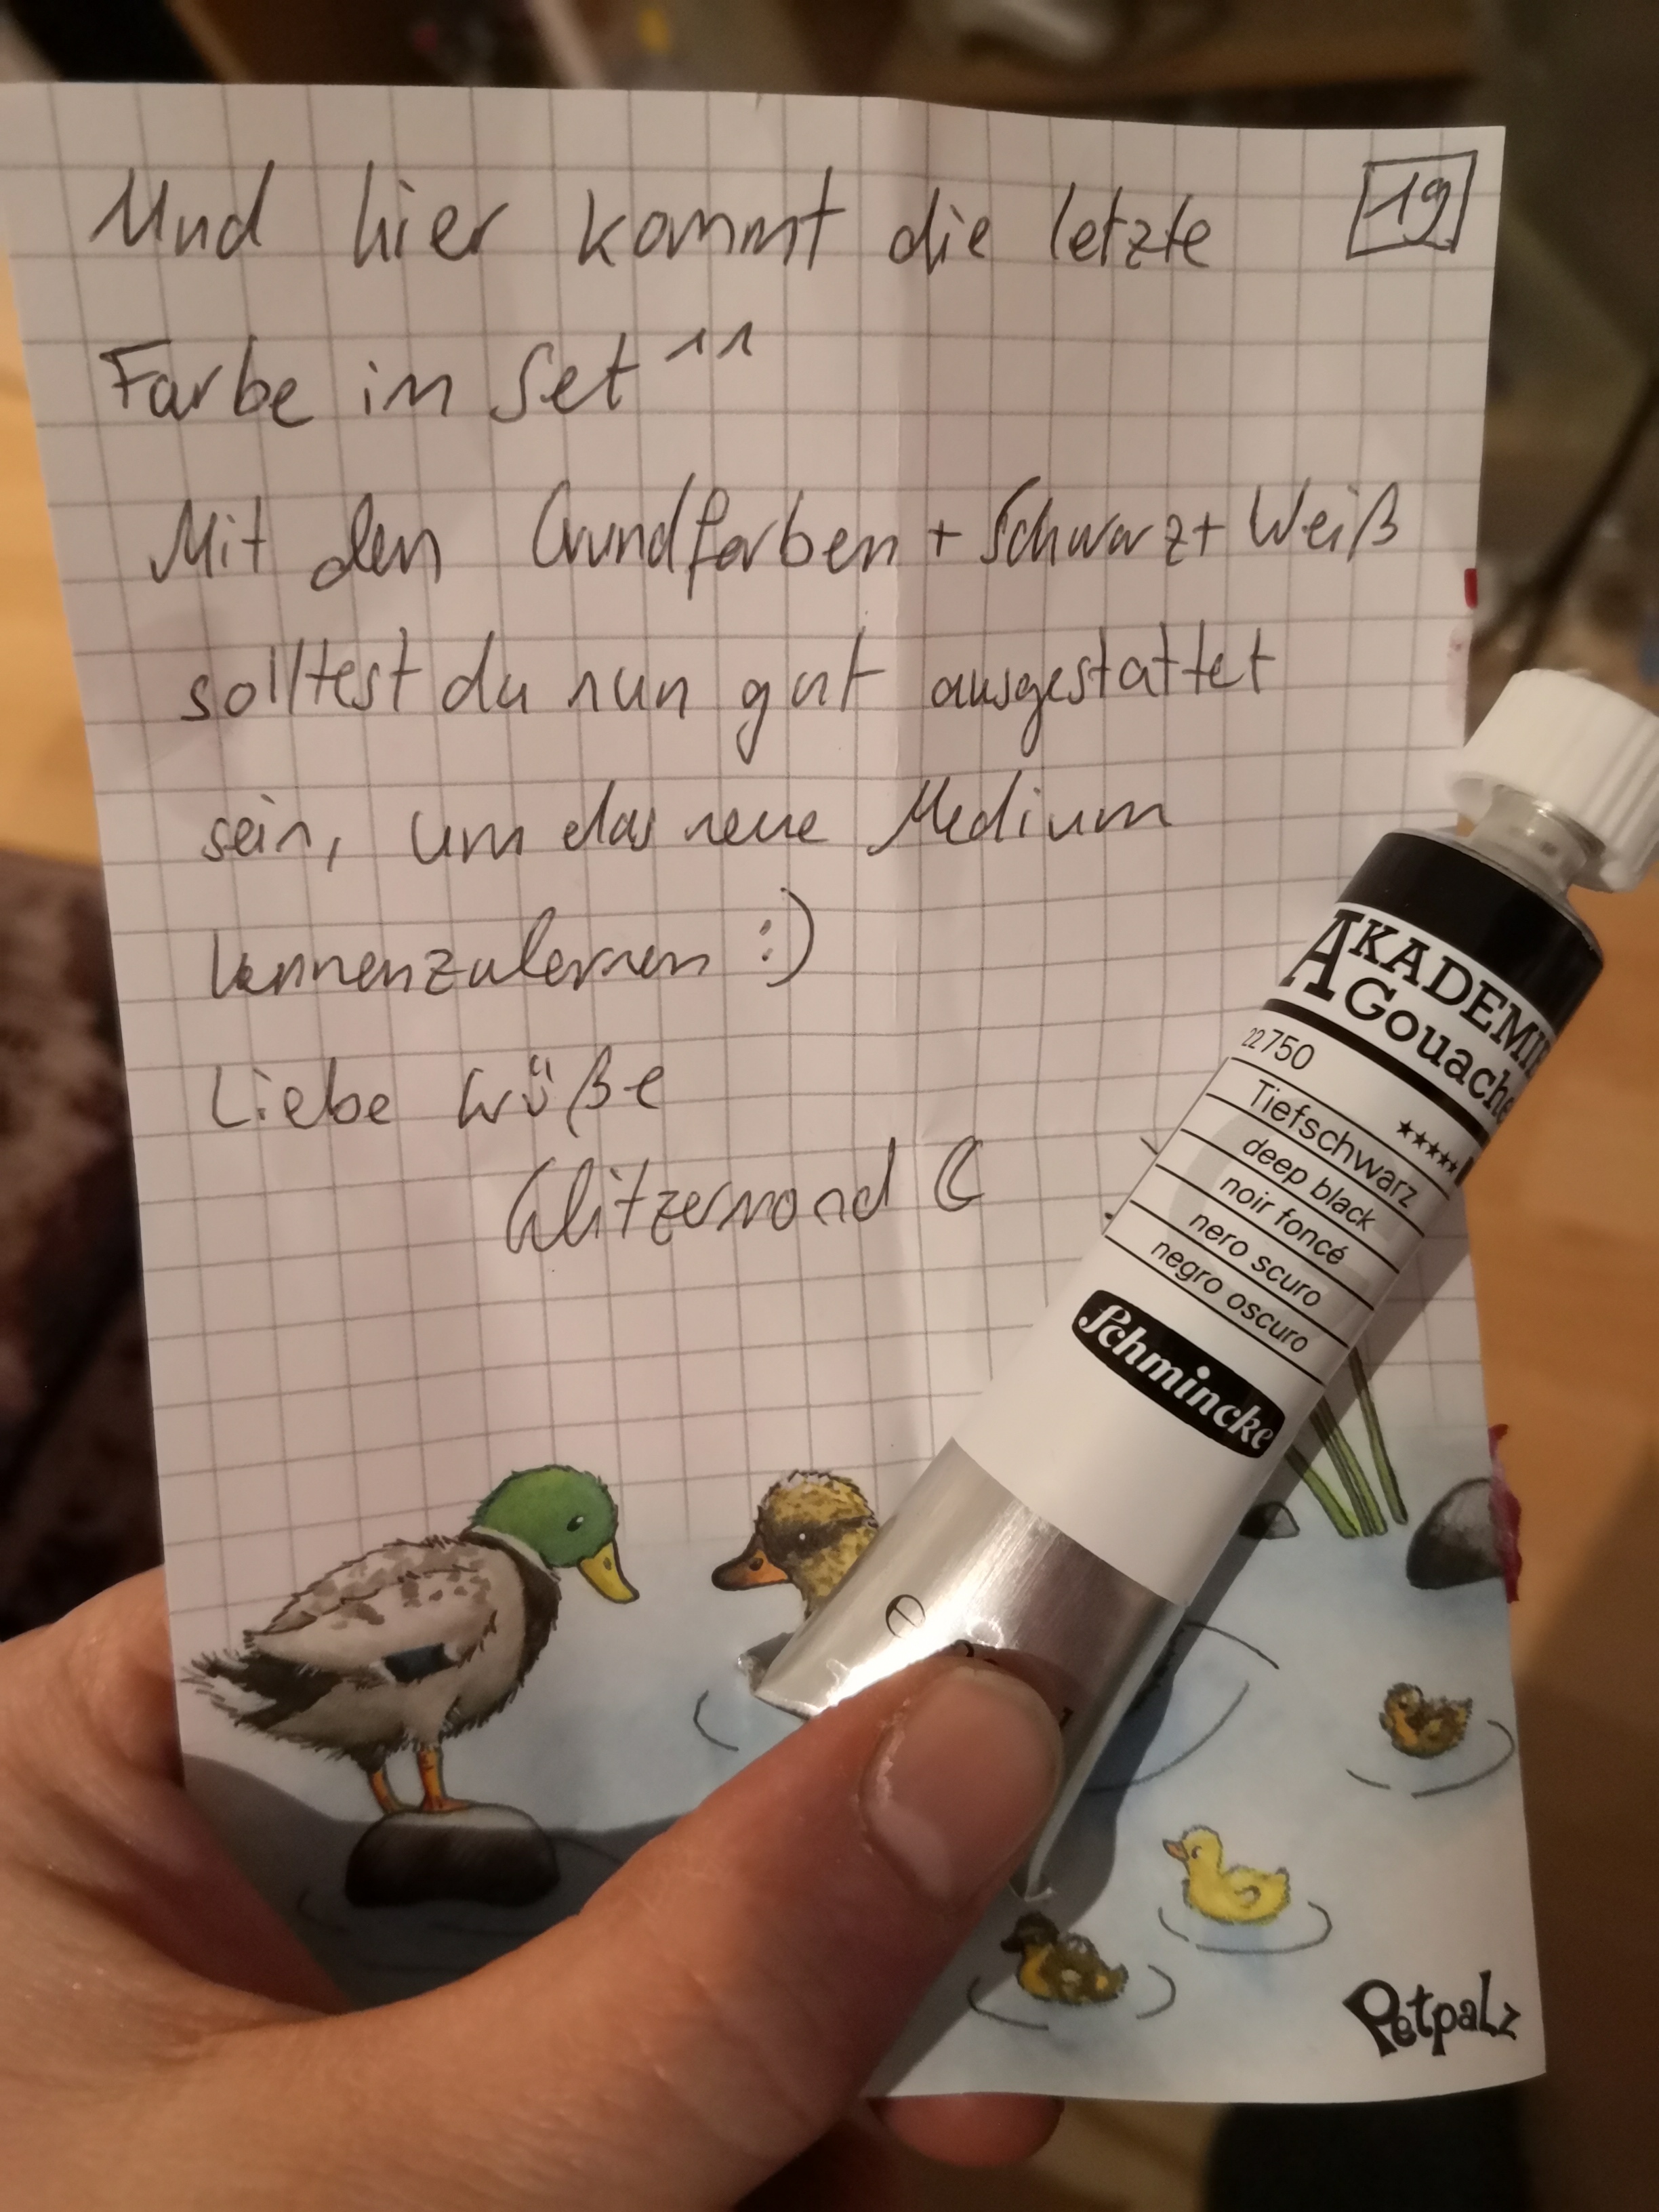 19
Und hier kommt die letzte
Farbe im Set ^^
Mit den Grundfarben + Schwarz + Weiß
solltest du nun gut ausgestattet
sein, um das neue Medium
kennenzulernen :)
Liebe Grüße
Glitzermond
AKADEMIE
Gouache
22 750
★★★★★
Tiefschwarz
deep black
noir foncé
nero scuro
negro oscuro
Schmincke
Petpalz